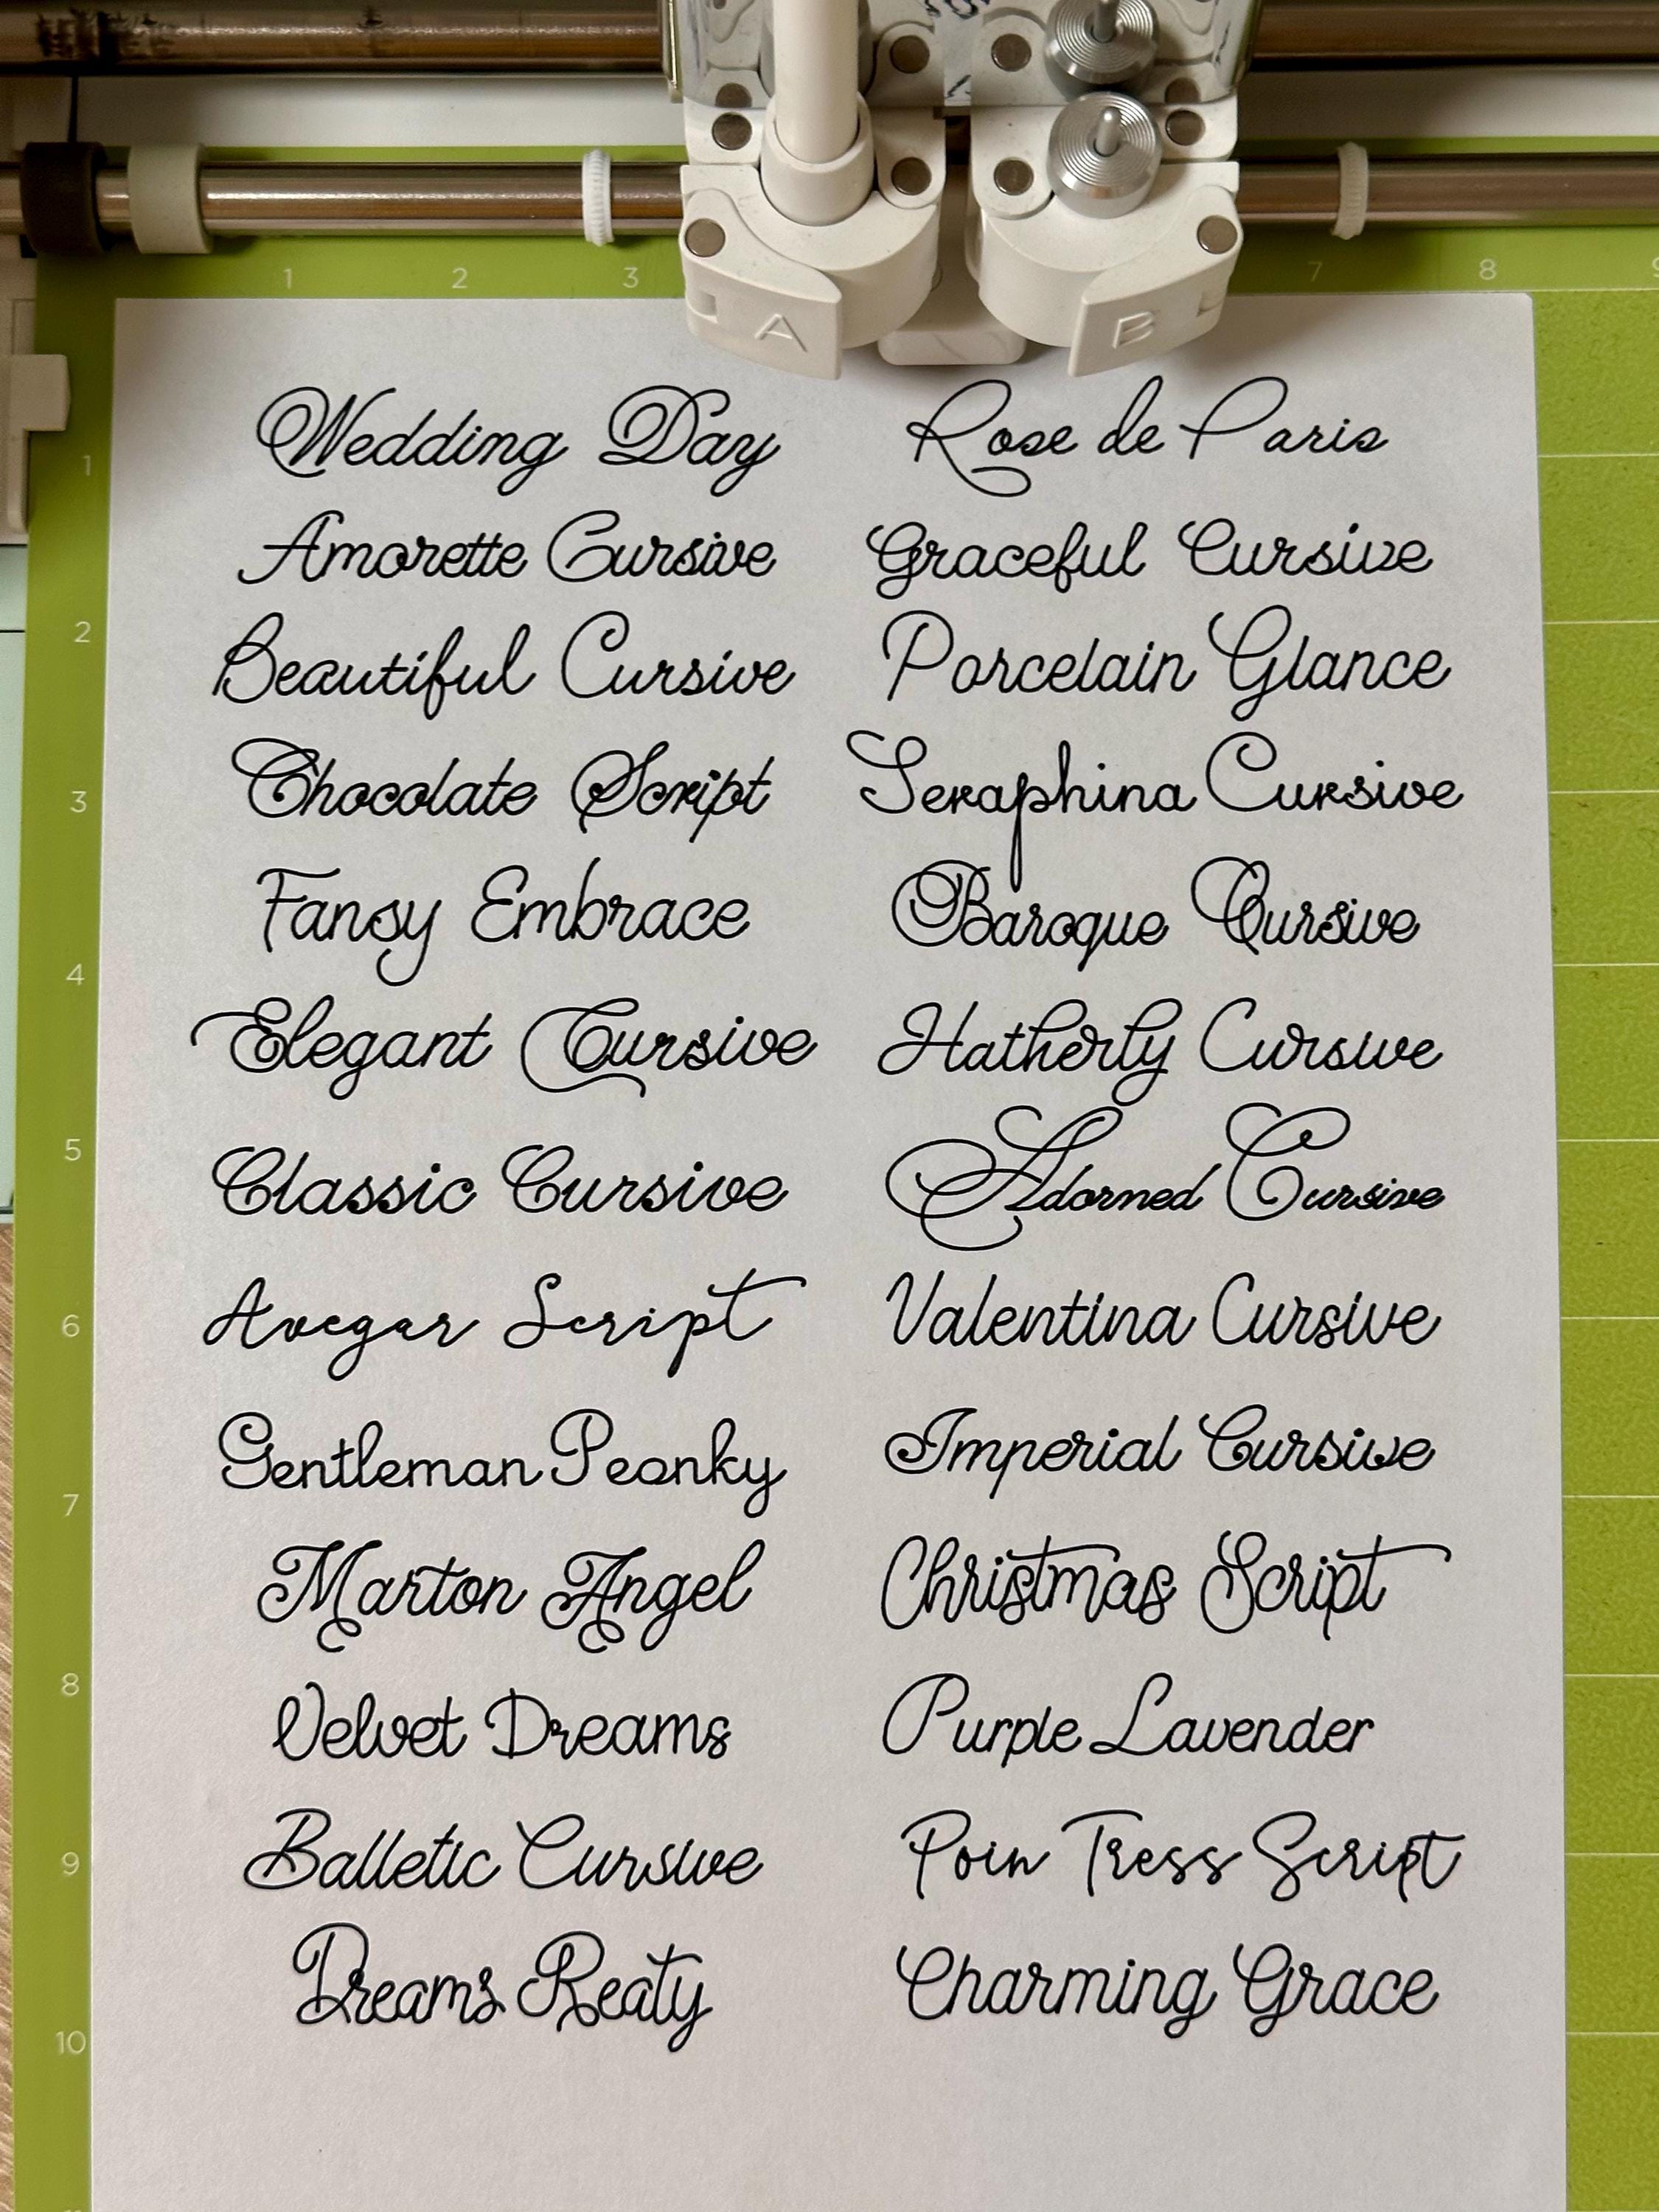 1 2 3 7 8 9
A B
Wedding Day
Rose de Paris
1
Amorette Cursive
Graceful Cursive
2
Beautiful Cursive
Porcelain Glance
3
Chocolate Script
Seraphina Cursive
Fansy Embrace
Baroque Cursive
4
Elegant Cursive
Hatherly Cursive
5
Classic Cursive
Adorned Cursive
6
Avegar Script
Valentina Cursive
Gentleman Peonky
Imperial Cursive
7
Marton Angel
Christmas Script
8
Velvet Dreams
Purple Lavender
9
Balletic Cursive
Poin Tress Script
Dreams Reaty
Charming Grace
10